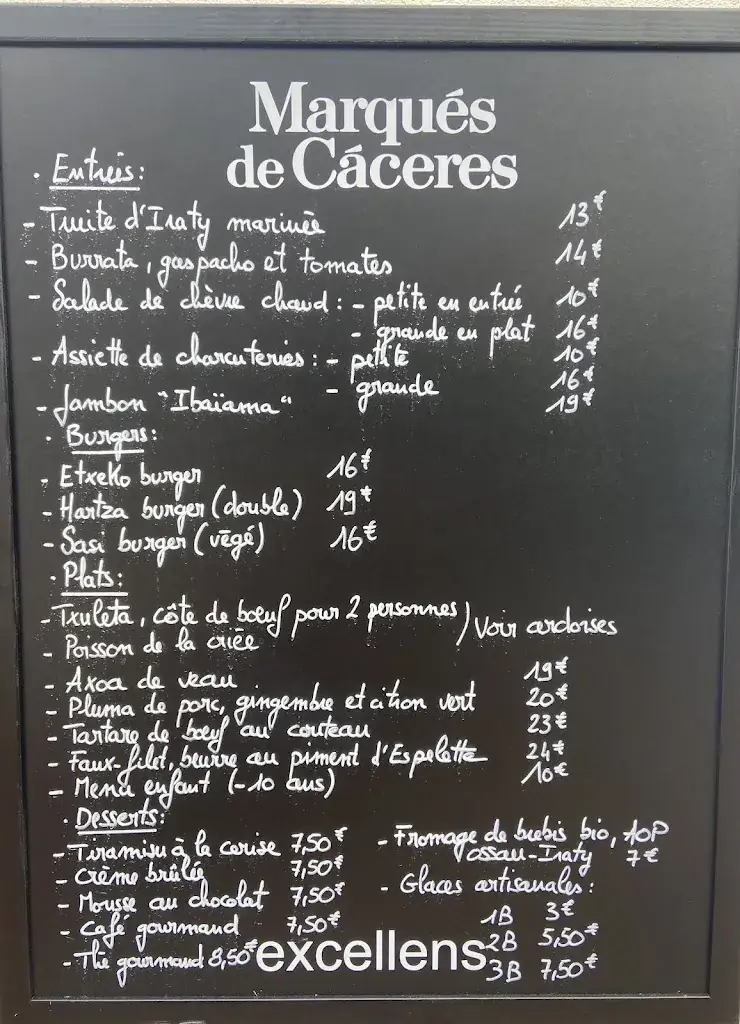 Marqués
de Cáceres
· Entrées :
- Truite d'Iraty marinée 13€
- Burrata, gaspacho et tomates 14€
- Salade de chèvre chaud : - petite en entrée 10€
- grande en plat 16€
- Assiette de charcuteries : - petite 10€
- grande 16€
- Jambon "Ibaïama" 19€
· Burgers :
- Etxeko burger 16€
- Hartza burger (double) 19€
- Sasi burger (végé) 16€
· Plats :
- Txuleta, côte de bœuf pour 2 personnes ) Voir ardoises
- Poisson de la criée
- Axoa de veau 19€
- Pluma de porc, gingembre et citron vert 20€
- Tartare de bœuf au couteau 23€
- Faux-filet, beurre au piment d'Espelette 24€
- Menu enfant (-10 ans) 10€
· Desserts :
- Tiramisu à la cerise 7,50€
- Crème brûlée 7,50€
- Mousse au chocolat 7,50€
- Café gourmand 7,50€
- Thé gourmand 8,50€
- Fromage de brebis bio, AOP
ossau-Iraty 7€
- Glaces artisanales :
1B 3€
2B 5,50€
3B 7,50€
excellens